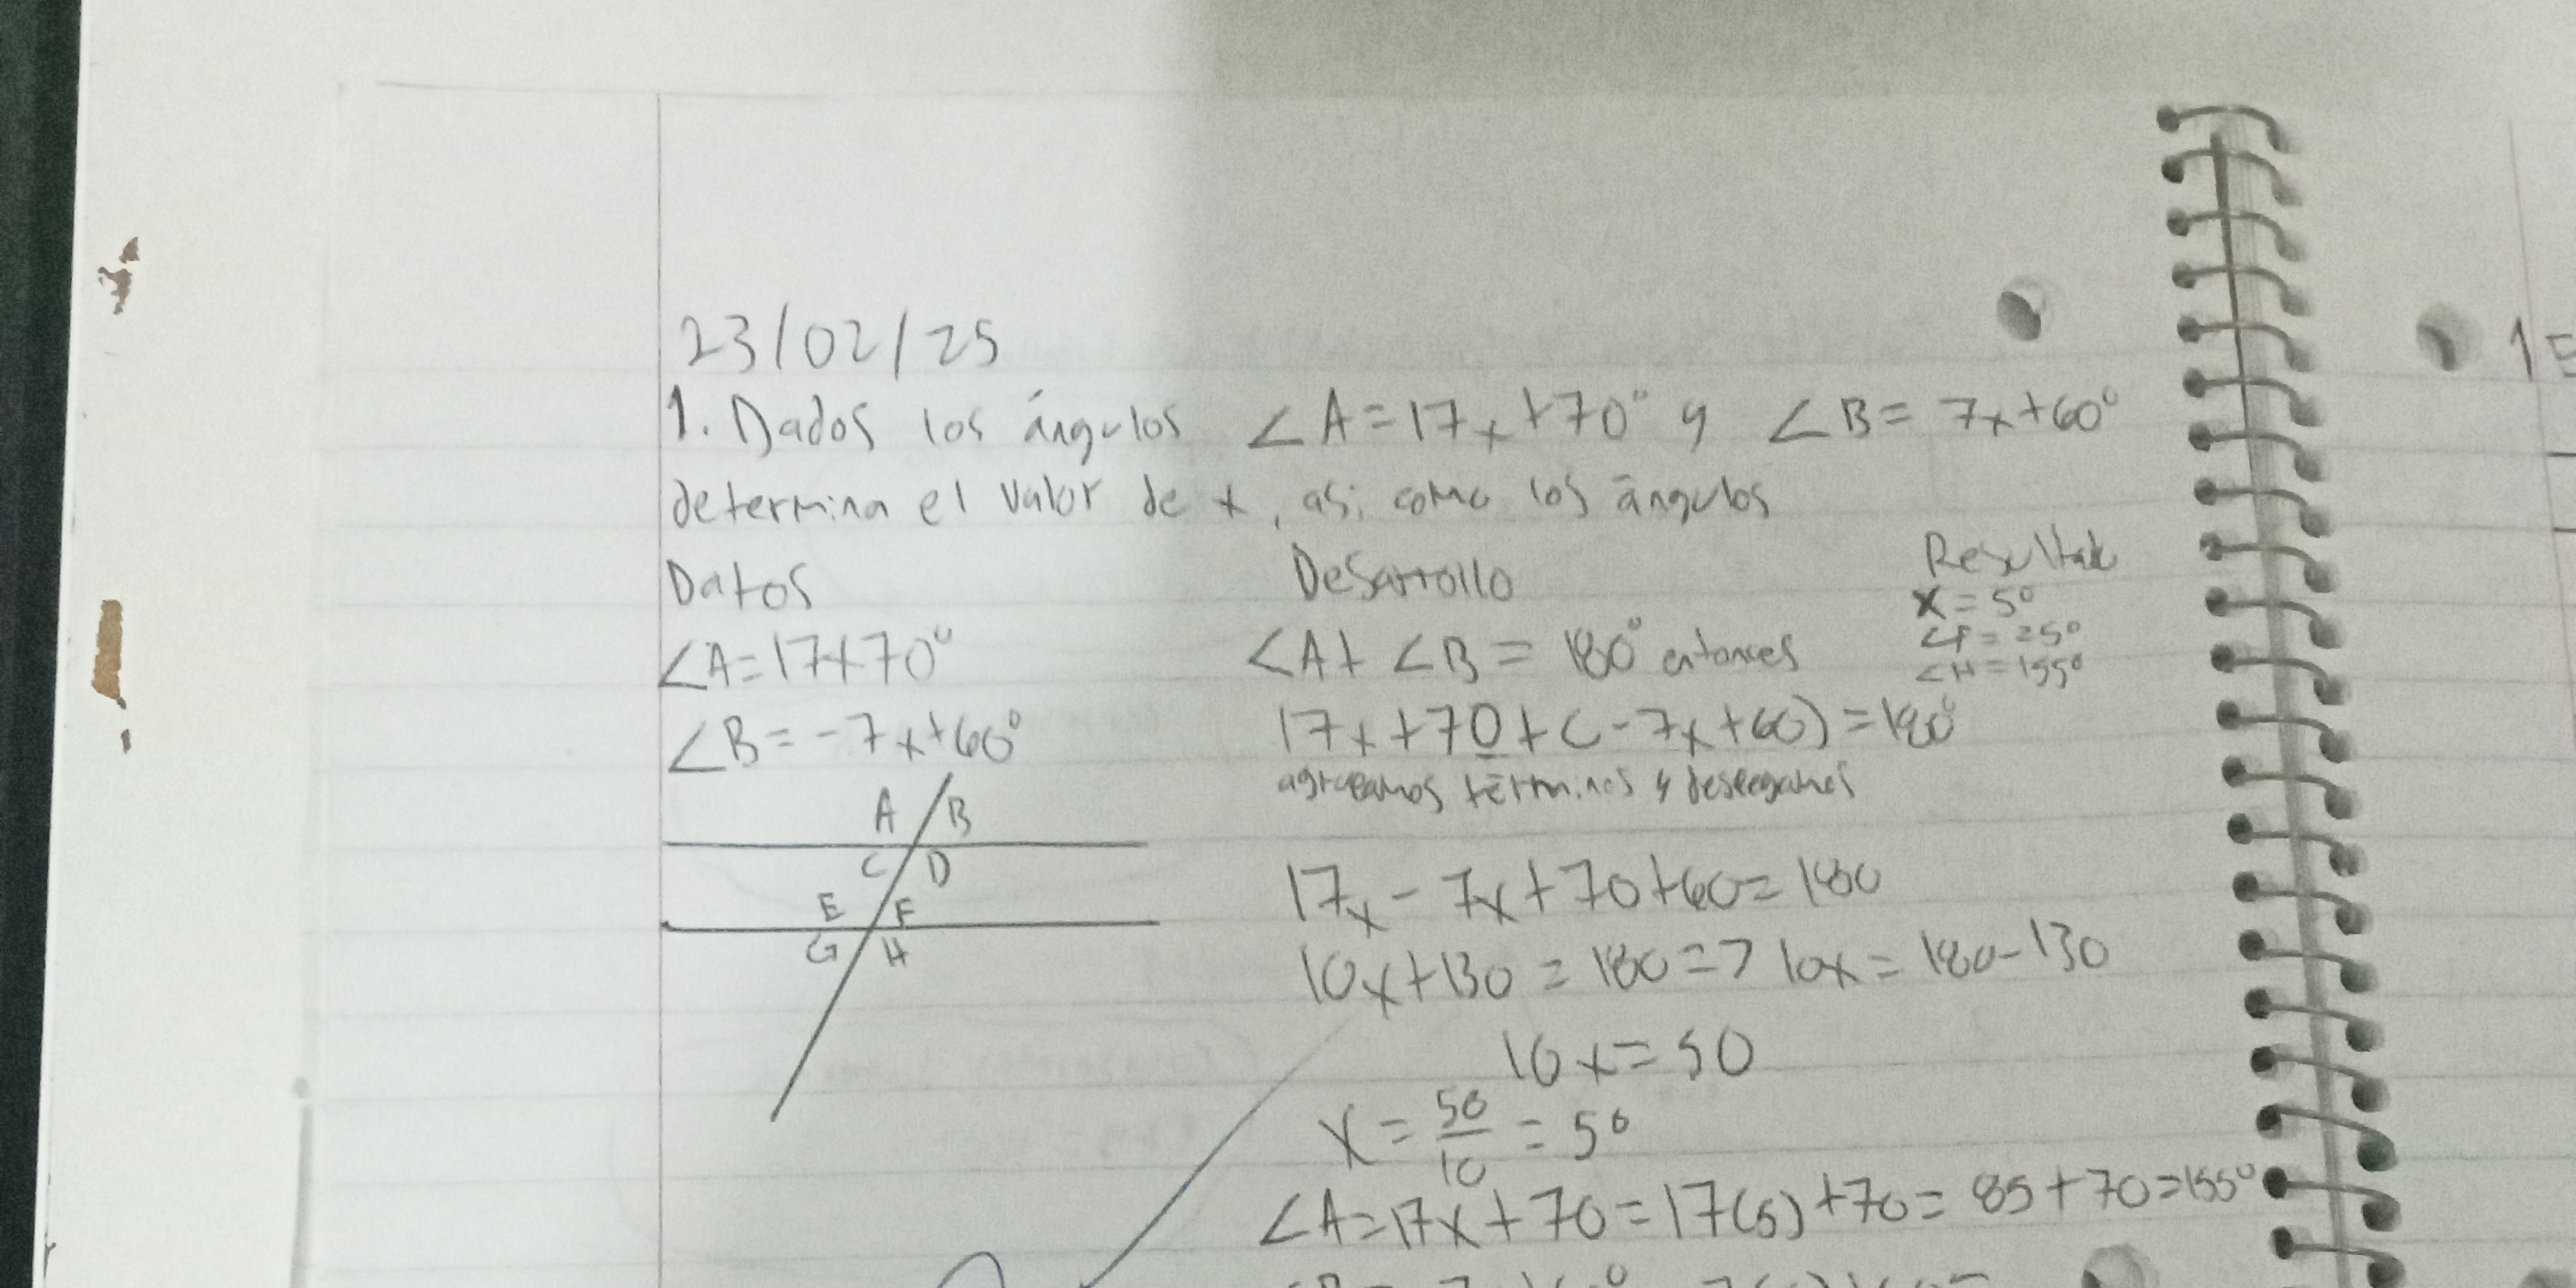 23/02/25
1. Dados los ángulos ∠A=17x+70° y ∠B= 7x+60°
determina el valor de x, asi como los ángulos
Datos
∠A=17x+70°
∠B=-7x+60°
A B
C D
E F
G H
Desarrollo
∠A+∠B=180° entonces
17x+70+(-7x+60)=180°
agrupamos términos y
17x-7x+70+60=180
10x+130=180=>10x=180-130
10x=50
x=50/10=5°
∠A=17x+70=17(5)+70=85+70=155°
x=5°
∠F=25°
∠H=155°
1